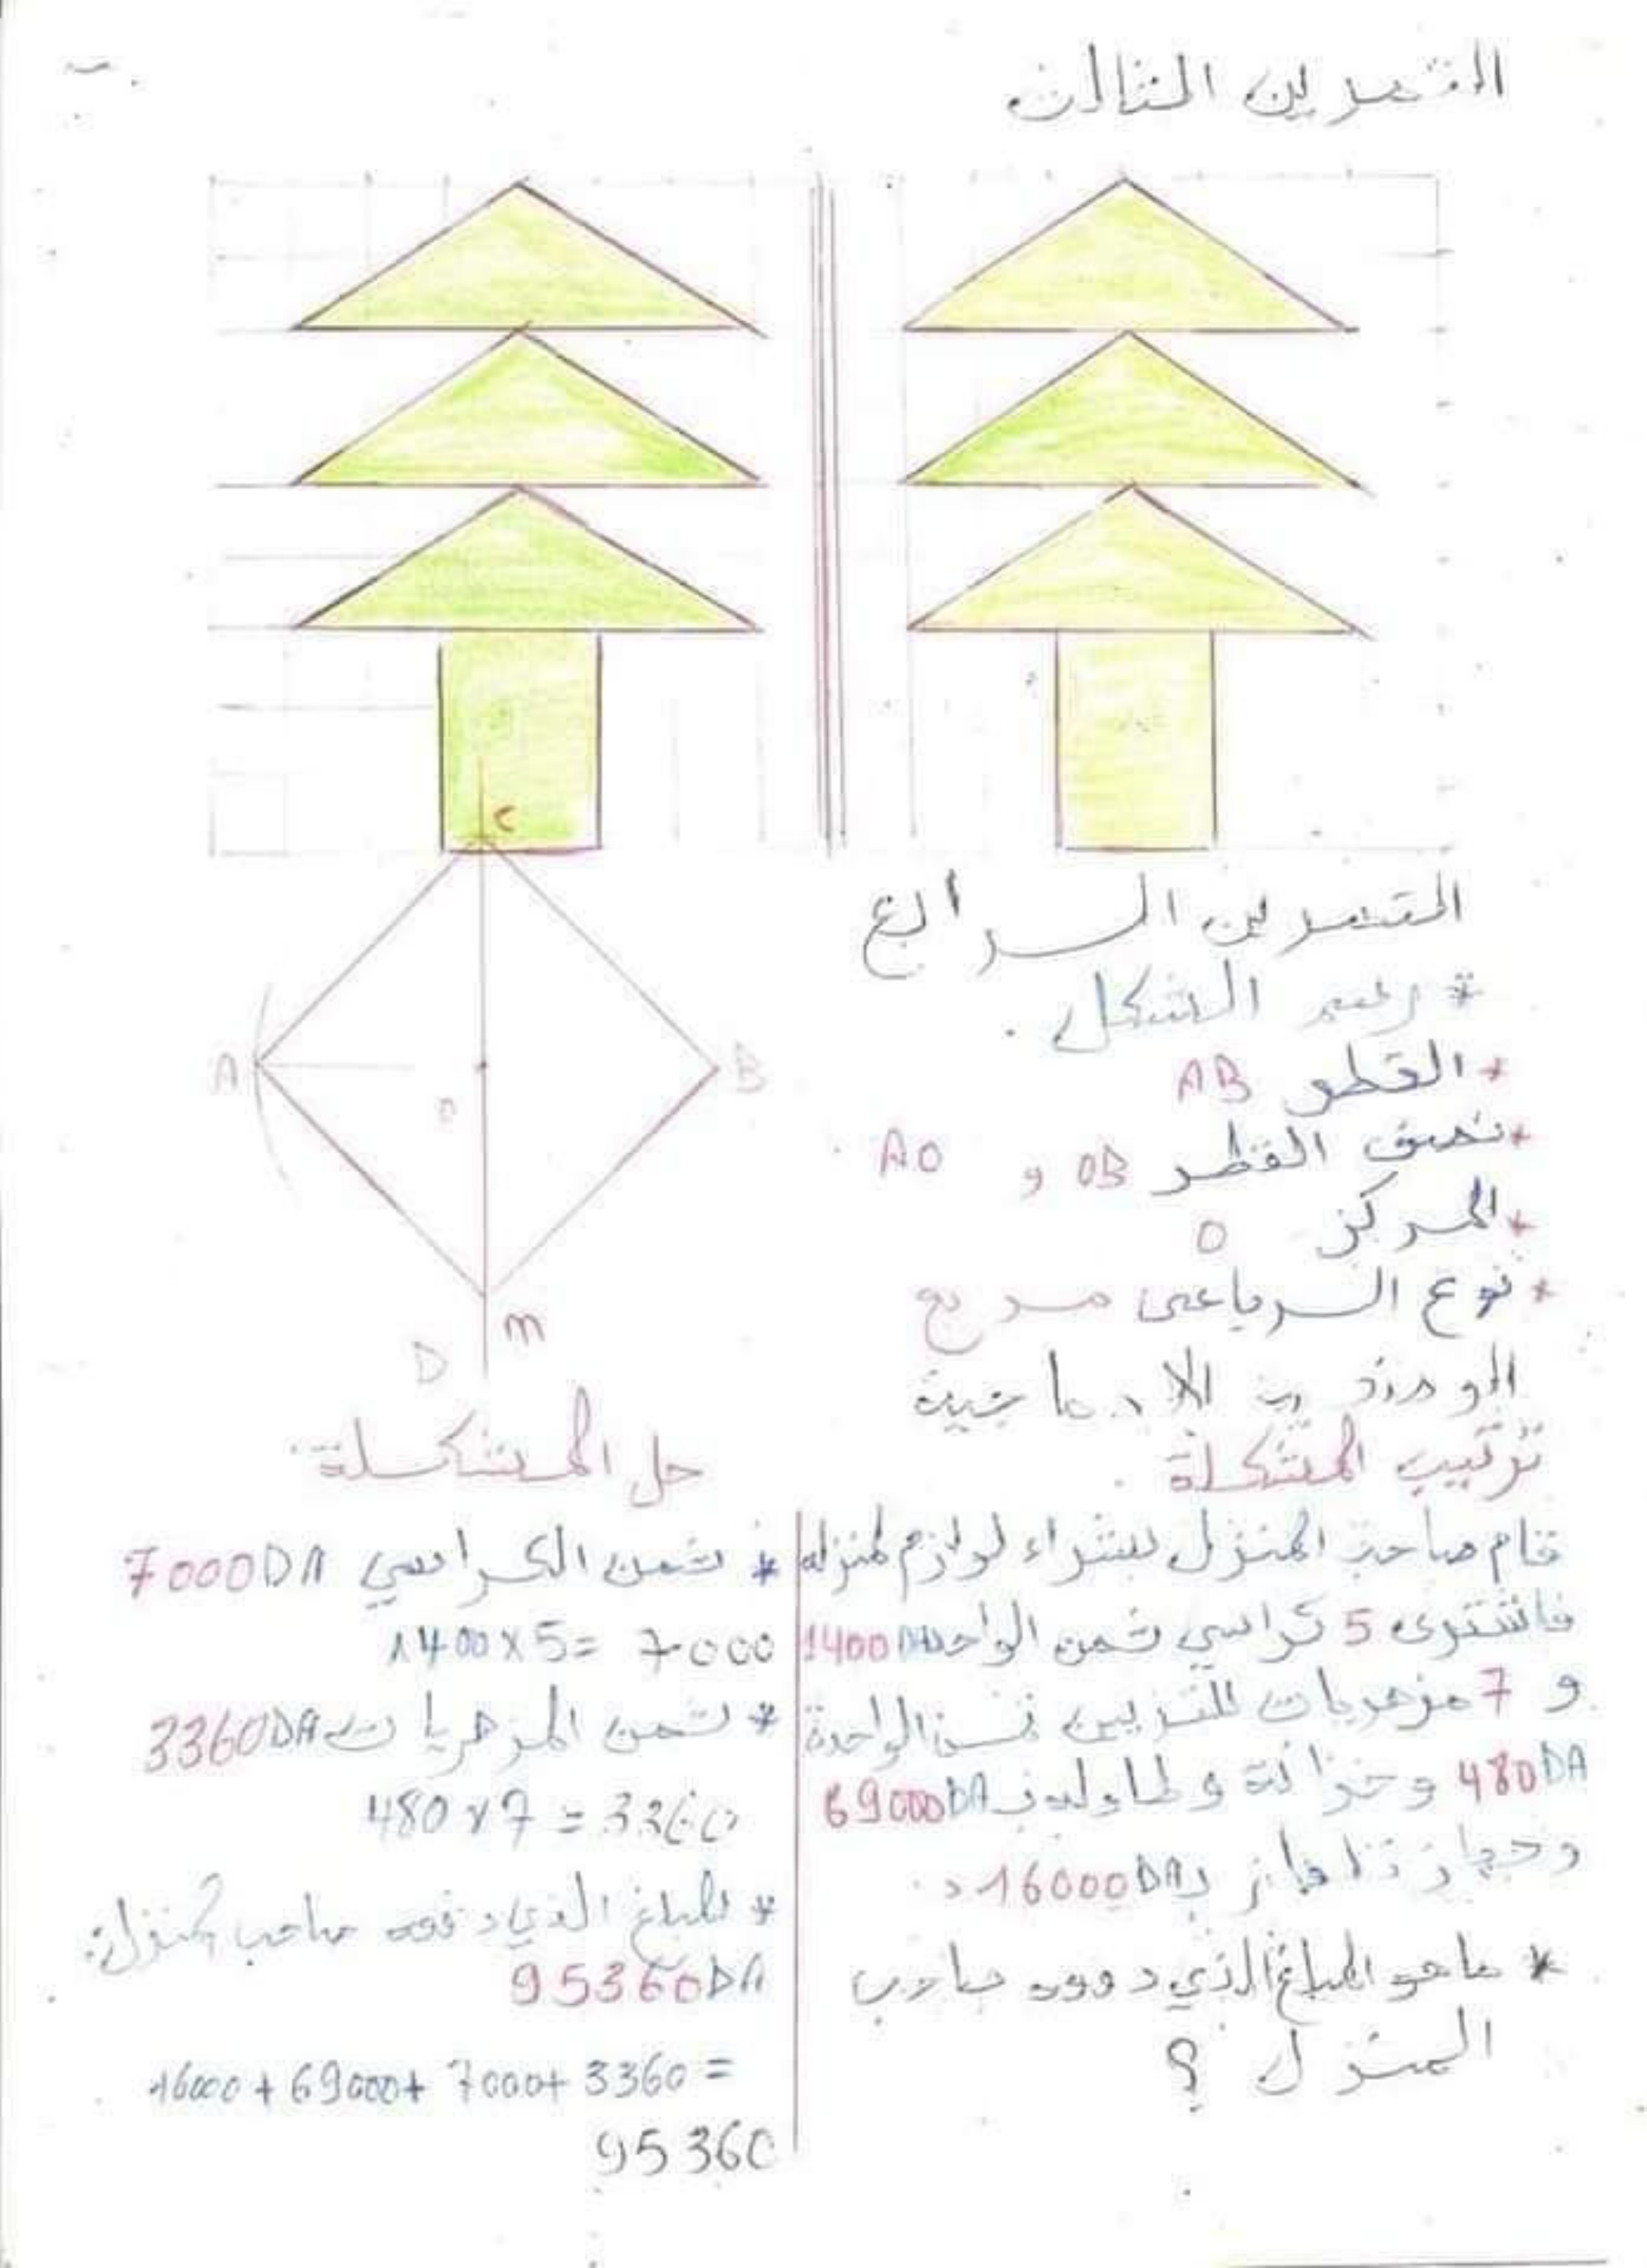 التمرين الثالث
التمرين الرابع
* رسم الشكل.
* القطر AB
* نصف القطر OB و AO
* المركز O
* نوع الرباعي مربع
C
A
B
O
m
D
الوضعية الادماجية
ترتيب المشكلة.
قام صاحب المنزل بشراء لوازم لمنزله
فاشترى 5 كراسي ثمن الواحد 1400DA
و 7 مزهريات للتزيين ثمن الواحدة
480DA وخزانة وطاولة بـ 69000DA
وجهاز تلفاز بـ 16000DA.
* ما هو المبلغ الذي دفعه صاحب
المنزل ؟
حل المشكلة:
* ثمن الكراسي 7000DA
1400x5= 7000
* ثمن المزهريات 3360DA
480x7=3360
* المبلغ الذي دفعه صاحب المنزل:
95360DA
16000+69000+7000+3360=
95360